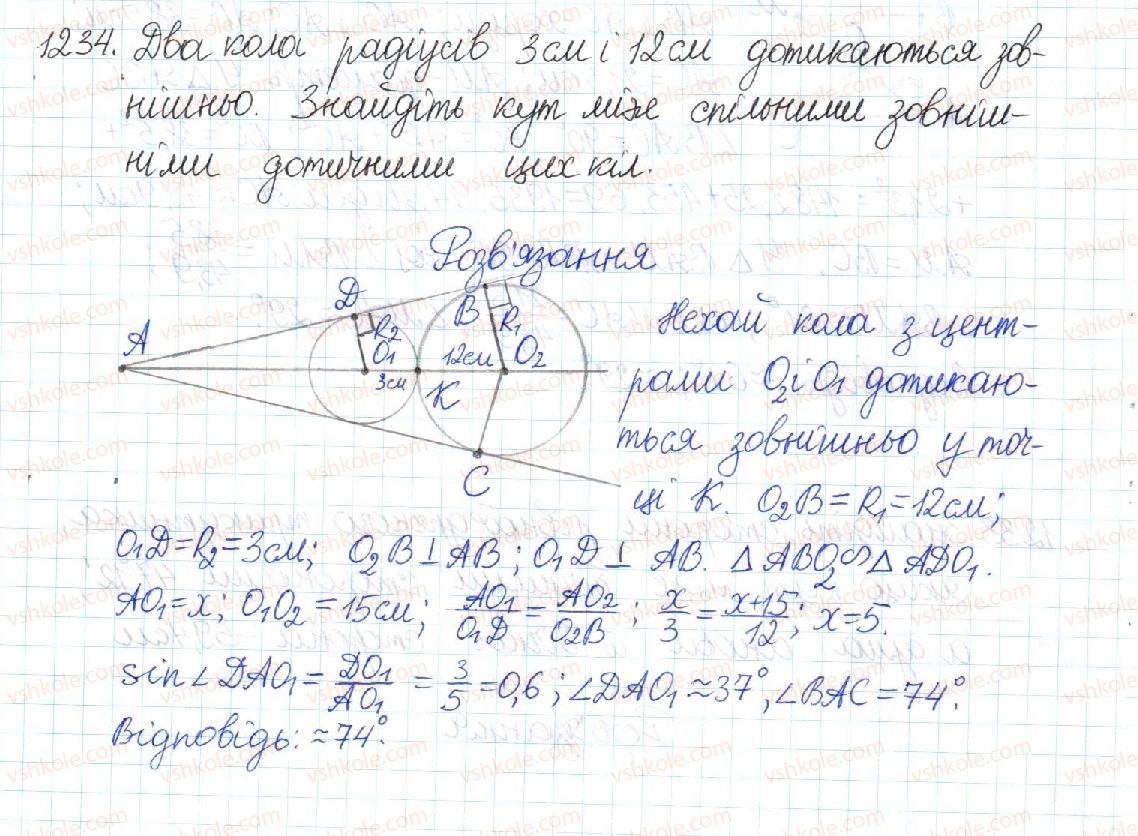 1234. Два кола радіусів 3 см і 12 см дотикаються зов-
нішньо. Знайдіть кут між спільними зовніш-
німи дотичними цих кіл.
Розв'язання
A
D
B
R₂
R₁
O₁
12см
O₂
3см
K
C
Нехай кола з цент-
рами O₂ і O₁ дотикаю-
ться зовнішньо у точ-
ці K. O₂B = R₁ = 12 см;
O₁D = R₂ = 3 см; O₂B ⊥ AB; O₁D ⊥ AB. △ABO₂ ∽ △ADO₁.
AO₁ = x; O₁O₂ = 15 см; AO₁/O₁D = AO₂/O₂B; x/3 = (x+15)/12; x = 5.
sin∠DAO₁ = DO₁/AO₁ = 3/5 = 0,6; ∠DAO₁ ≈ 37°, ∠BAC = 74°.
Відповідь: ≈ 74°.
vshkole.com